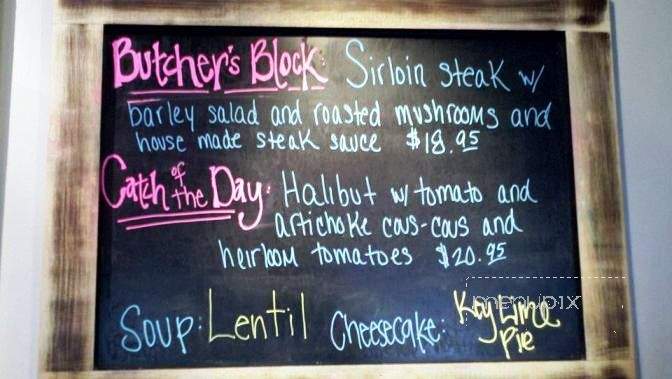 Butcher's Block: Sirloin steak w/
barley salad and roasted mushrooms and
house made steak sauce $18.95
Catch of the Day: Halibut w/ tomato and
artichoke cous-cous and
heirloom tomatoes $20.95
Soup: Lentil Cheesecake: Key Lime
Pie
menupix